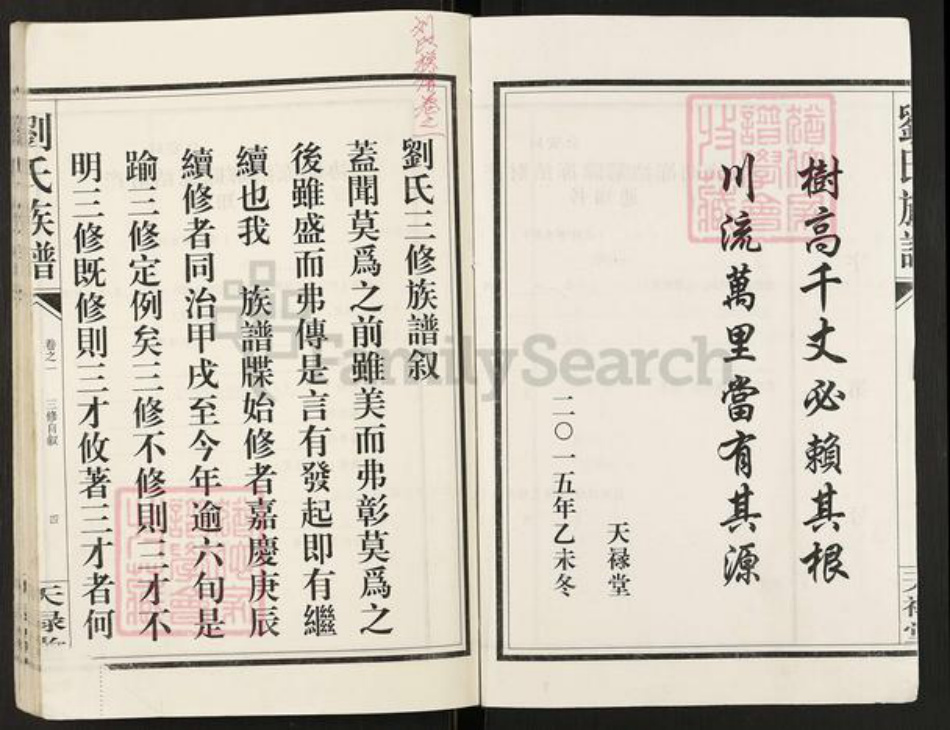 樹高千丈必賴其根
川流萬里當有其源
天禄堂
二〇一五年乙未冬
劉氏族譜
天禄堂
劉氏三修族譜叙
蓋聞莫爲之前雖美而弗彰莫爲之
後雖盛而弗傳是言有發起即有繼
續也我 族譜牒始修者嘉慶庚辰
續修者同治甲戌至今年逾六旬是
踰三修定例矣三修不修則三才不
明三修既修則三才攸著三才者何
劉氏族譜
卷之一
三修自叙
四
天禄堂
FamilySearch